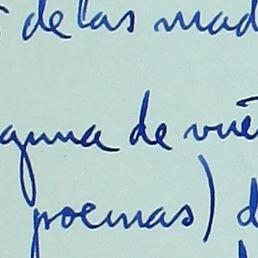 de las mad
guna de vue
poemas) d